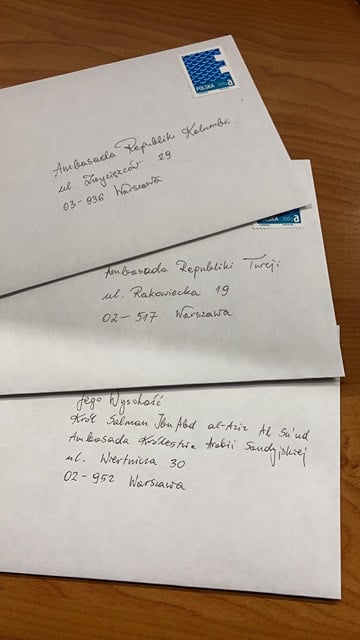 POLSKA
A
Ambasada Republiki Kolumbii
ul. Zwycięzców 29
03-936 Warszawa
A
Ambasada Republiki Turcji
ul. Rakowiecka 19
02-517 Warszawa
Jego Wysokość
Król Salman Ibn Abd al-Aziz Al Su'ud
Ambasada Królestwa Arabii Saudyjskiej
ul. Wiertnicza 30
02-952 Warszawa